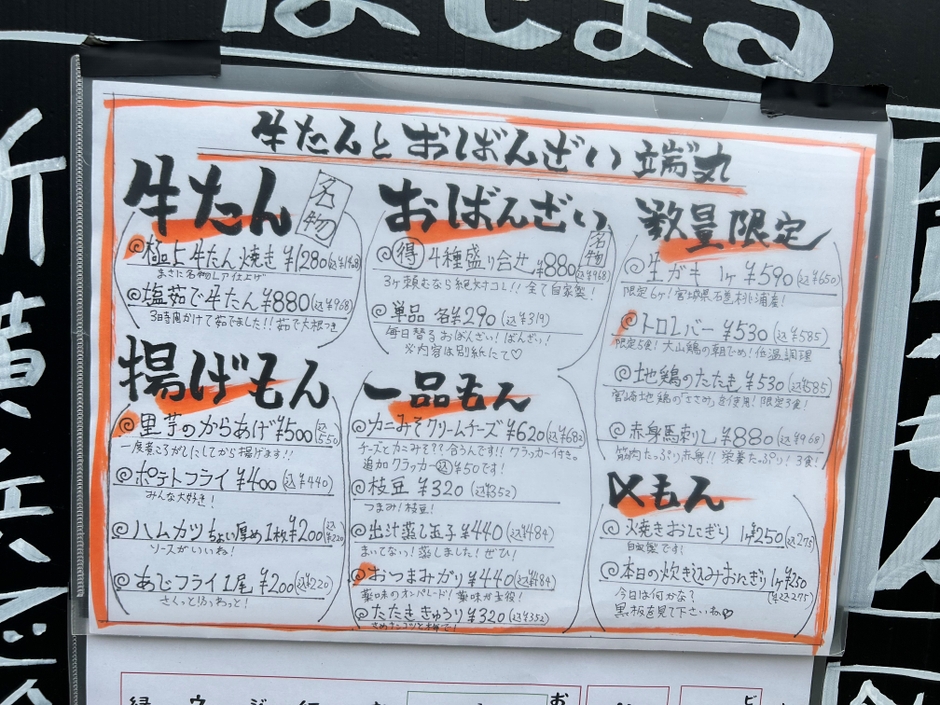 はじまる
牛たんとおばんざい 端丸
牛たん 名物
◎極上牛たん焼き ¥1280(込¥1408)
まさに名物レア仕上げ
◎塩茹で牛たん ¥880(込¥968)
3時間かけて茹でました!!茹で大根つき
揚げもん
◎里芋のからあげ ¥500(込550)
一度煮ころがしにしてから揚げます!!
◎ポテトフライ ¥400(込¥440)
みんな大好き!
◎ハムカツ ちょい厚め1枚 ¥200(込¥220)
ソースがいいね!
◎あじフライ1尾 ¥200(込¥220)
さくっとふわっと!
おばんざい 名物
◎得 4種盛り合せ ¥880(込¥968)
3ヶ頼むなら絶対コレ!! 全て自家製!
◎単品 各¥290(込¥319)
毎日替るおばんざい!ばんざい!
※内容は別紙にて♡
一品もん
◎カニみそクリームチーズ ¥620(込¥682)
チーズとカニみそ??合うんです!! クラッカー付き。
追加クラッカー込¥50です!
◎枝豆 ¥320(込¥352)
つまみ!枝豆!
◎出汁蒸し玉子 ¥440(込¥484)
まいてないっ!蒸しました!ぜひ!
◎おつまみガリ ¥440(込¥484)
薬味のオンパレード!薬味が主役!
◎たたききゅうり ¥320(込¥352)
数量限定
◎生ガキ 1ヶ ¥590(込¥650)
限定6ヶ!宮城県石巻桃浦産!
◎トロレバー ¥530(込¥585)
限定5食!大山鶏の朝じめ!低温調理
◎地鶏のたたき ¥530(込¥585)
宮崎地鶏の「ささみ」を使用!限定3食!
◎赤身馬刺し ¥880(込¥968)
筋肉たっぷり赤身!!栄養たっぷり!3食!
〆もん
◎火焼きおにぎり 1ヶ¥250(込275)
自家製です!
◎本日の炊き込みおにぎり 1ヶ¥250(込¥275)
今日は何かな?
黒板を見て下さいね♡